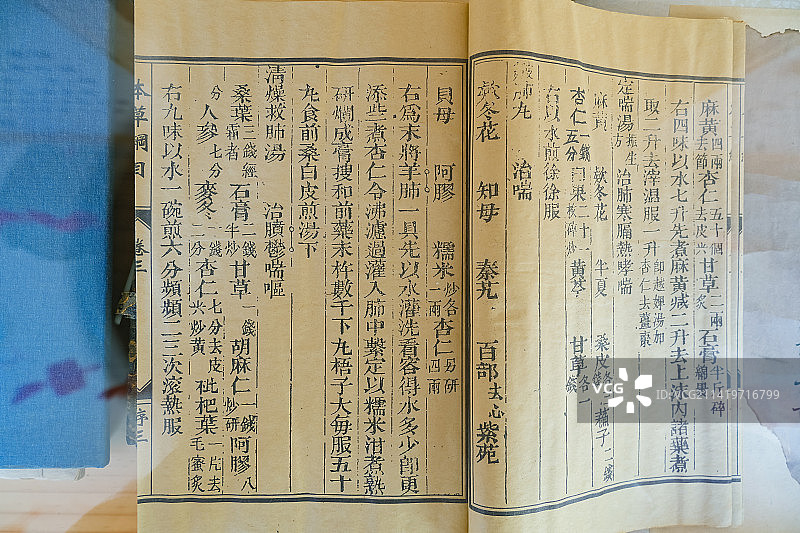 麻黃四兩去節杏仁五十個去皮尖甘草二兩炙石膏半斤碎綿裹
右四味以水七升先煮麻黃減二升去上沫內諸藥煮
取二升去滓溫服一升卽越婢湯加杏仁去薑棗
定喘湯方 治肺寒膈熱哮喘
麻黃 款冬花 半夏 桑皮 蘇子二錢
杏仁一錢五分 白果二十一 黃芩 甘草各一錢
右以水煎徐徐服
肺丸 治喘
款冬花 知母 秦艽 百部去心 紫菀
貝母 阿膠 糯米炒各一兩杏仁另研四兩
右爲末將羊肺一具先以水灌洗看容得水多少卽更
添些煮杏仁令沸濾過灌入肺中繫定以糯米泔煮熟
研爛成膏搜和前藥末杵數千下丸梧子大每服五十
丸食前桑白皮煎湯下
清燥救肺湯 治膹鬱喘嘔
桑葉三錢經霜者石膏二錢半炒甘草一錢胡麻仁一錢炒研阿膠八
分人參七分麥冬一錢二分杏仁七分去皮尖炒黃枇杷葉一片去毛蜜炙
右九味以水一碗煎六分頻頻二三次滾熱服
本草綱目 卷三 序三
VCG
vcg.com/VCG41N1419716799